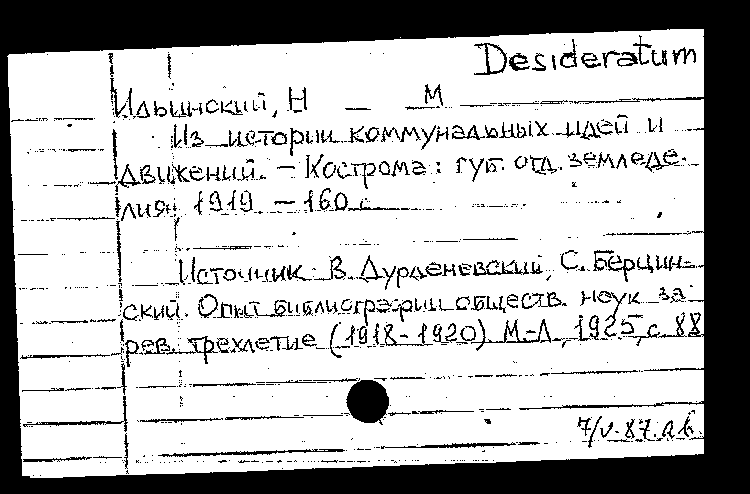 Desideratum
Ильинский, Н — М
Из истории коммунальных идей и
движений. – Кострома: губ. отд. земледе-
лия, 1919. – 160 с.
Источник: В. Дурденевский, С. Берцин-
ский. Опыт библиографии обществ. наук за
рев. трехлетие (1918-1920). М.-Л., 1925, с. 88
7/V-87. а.в.